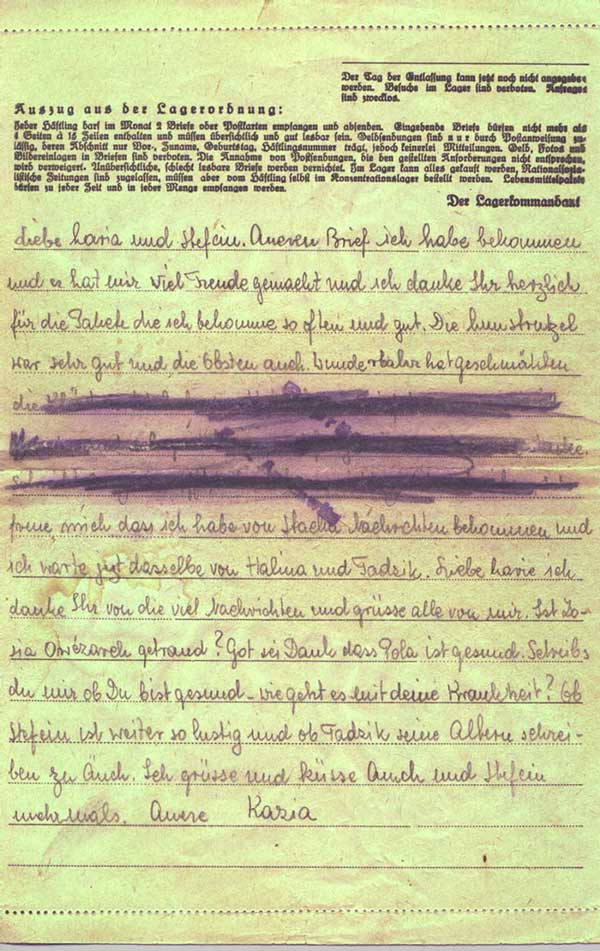 Der Tag der Entlassung kann jetzt noch nicht angegeben
werden. Besuche im Lager sind verboten. Anfragen
sind zwecklos.
Auszug aus der Lagerordnung:
Jeder Häftling darf im Monat 2 Briefe oder Postkarten empfangen und absenden. Eingehende Briefe dürfen nicht mehr als
4 Seiten à 15 Zeilen enthalten und müssen übersichtlich und gut lesbar sein. Geldsendungen sind nur durch Postanweisung zu-
lässig, deren Abschnitt nur Vor-, Zuname, Geburtstag, Häftlingsnummer trägt, jedoch keinerlei Mitteilungen. Geld, Fotos und
Bildereinlagen in Briefen sind verboten. Die Annahme von Postsendungen, die den gestellten Anforderungen nicht entsprechen,
wird verweigert. Unübersichtliche, schlecht lesbare Briefe werden vernichtet. Im Lager kann alles gekauft werden. Nationalsozia-
listische Zeitungen sind zugelassen, müssen aber vom Häftling selbst im Konzentrationslager bestellt werden. Lebensmittelpakete
dürfen zu jeder Zeit und in jeder Menge empfangen werden.
Der Lagerkommandant
Liebe haria und Stefcin. Aueren Brief ich habe bekommen
und er hat mir viel Freude gemacht und ich danke Ihr herzlich
für die Pakete die ich bekomme so often und gut. Die
war sehr gut und die Obsten auch. Wunderbahr hat geschmäkken
die
freue mich dass ich habe von Stacha Nachrichten bekommen und
ich warte jezt dasselbe von Halina und Tadzik. Liebe harie ich
danke Ihr von die viel Nachrichten und grüsse alle von mir. Ist Zo-
sia getraud? Got sei Dank dass Pola ist gesund. Schreibs
du mir ob Du bist gesund - wie geht es mit deine Krankheit? Ob
Stefcin ist weiter so lustig und ob Tadzik seine Altern schrei-
ben zu Auch. Ich grüsse und küsse Auch und Stefcin
mehrmals. Auere Kazia